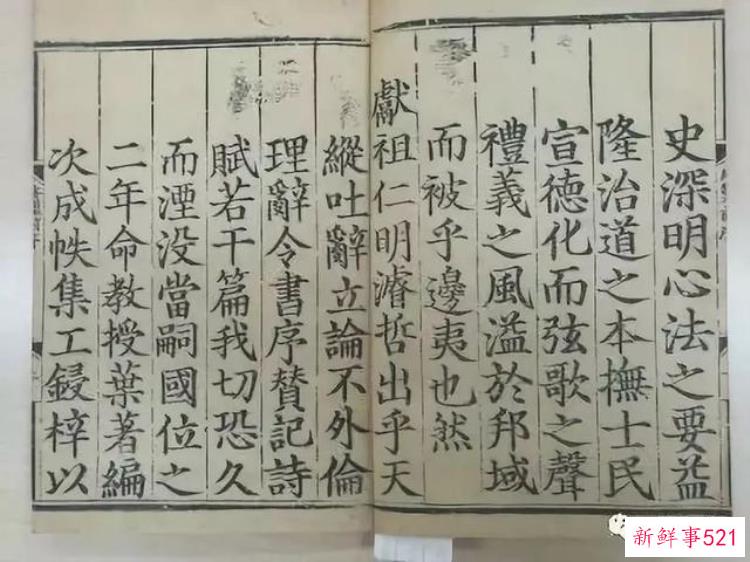 史深明心法之要益
隆治道之本撫士民
宣德化而弦歌之聲
禮義之風溢於邦域
而被乎邊夷也然
獻祖仁明濬哲出乎天
縱吐辭立論不外倫
理辭令書序賛記詩
賦若干篇我切恐久
而湮没當嗣國位之
二年命教授葉著編
次成帙集工鋟梓以
新鮮事521